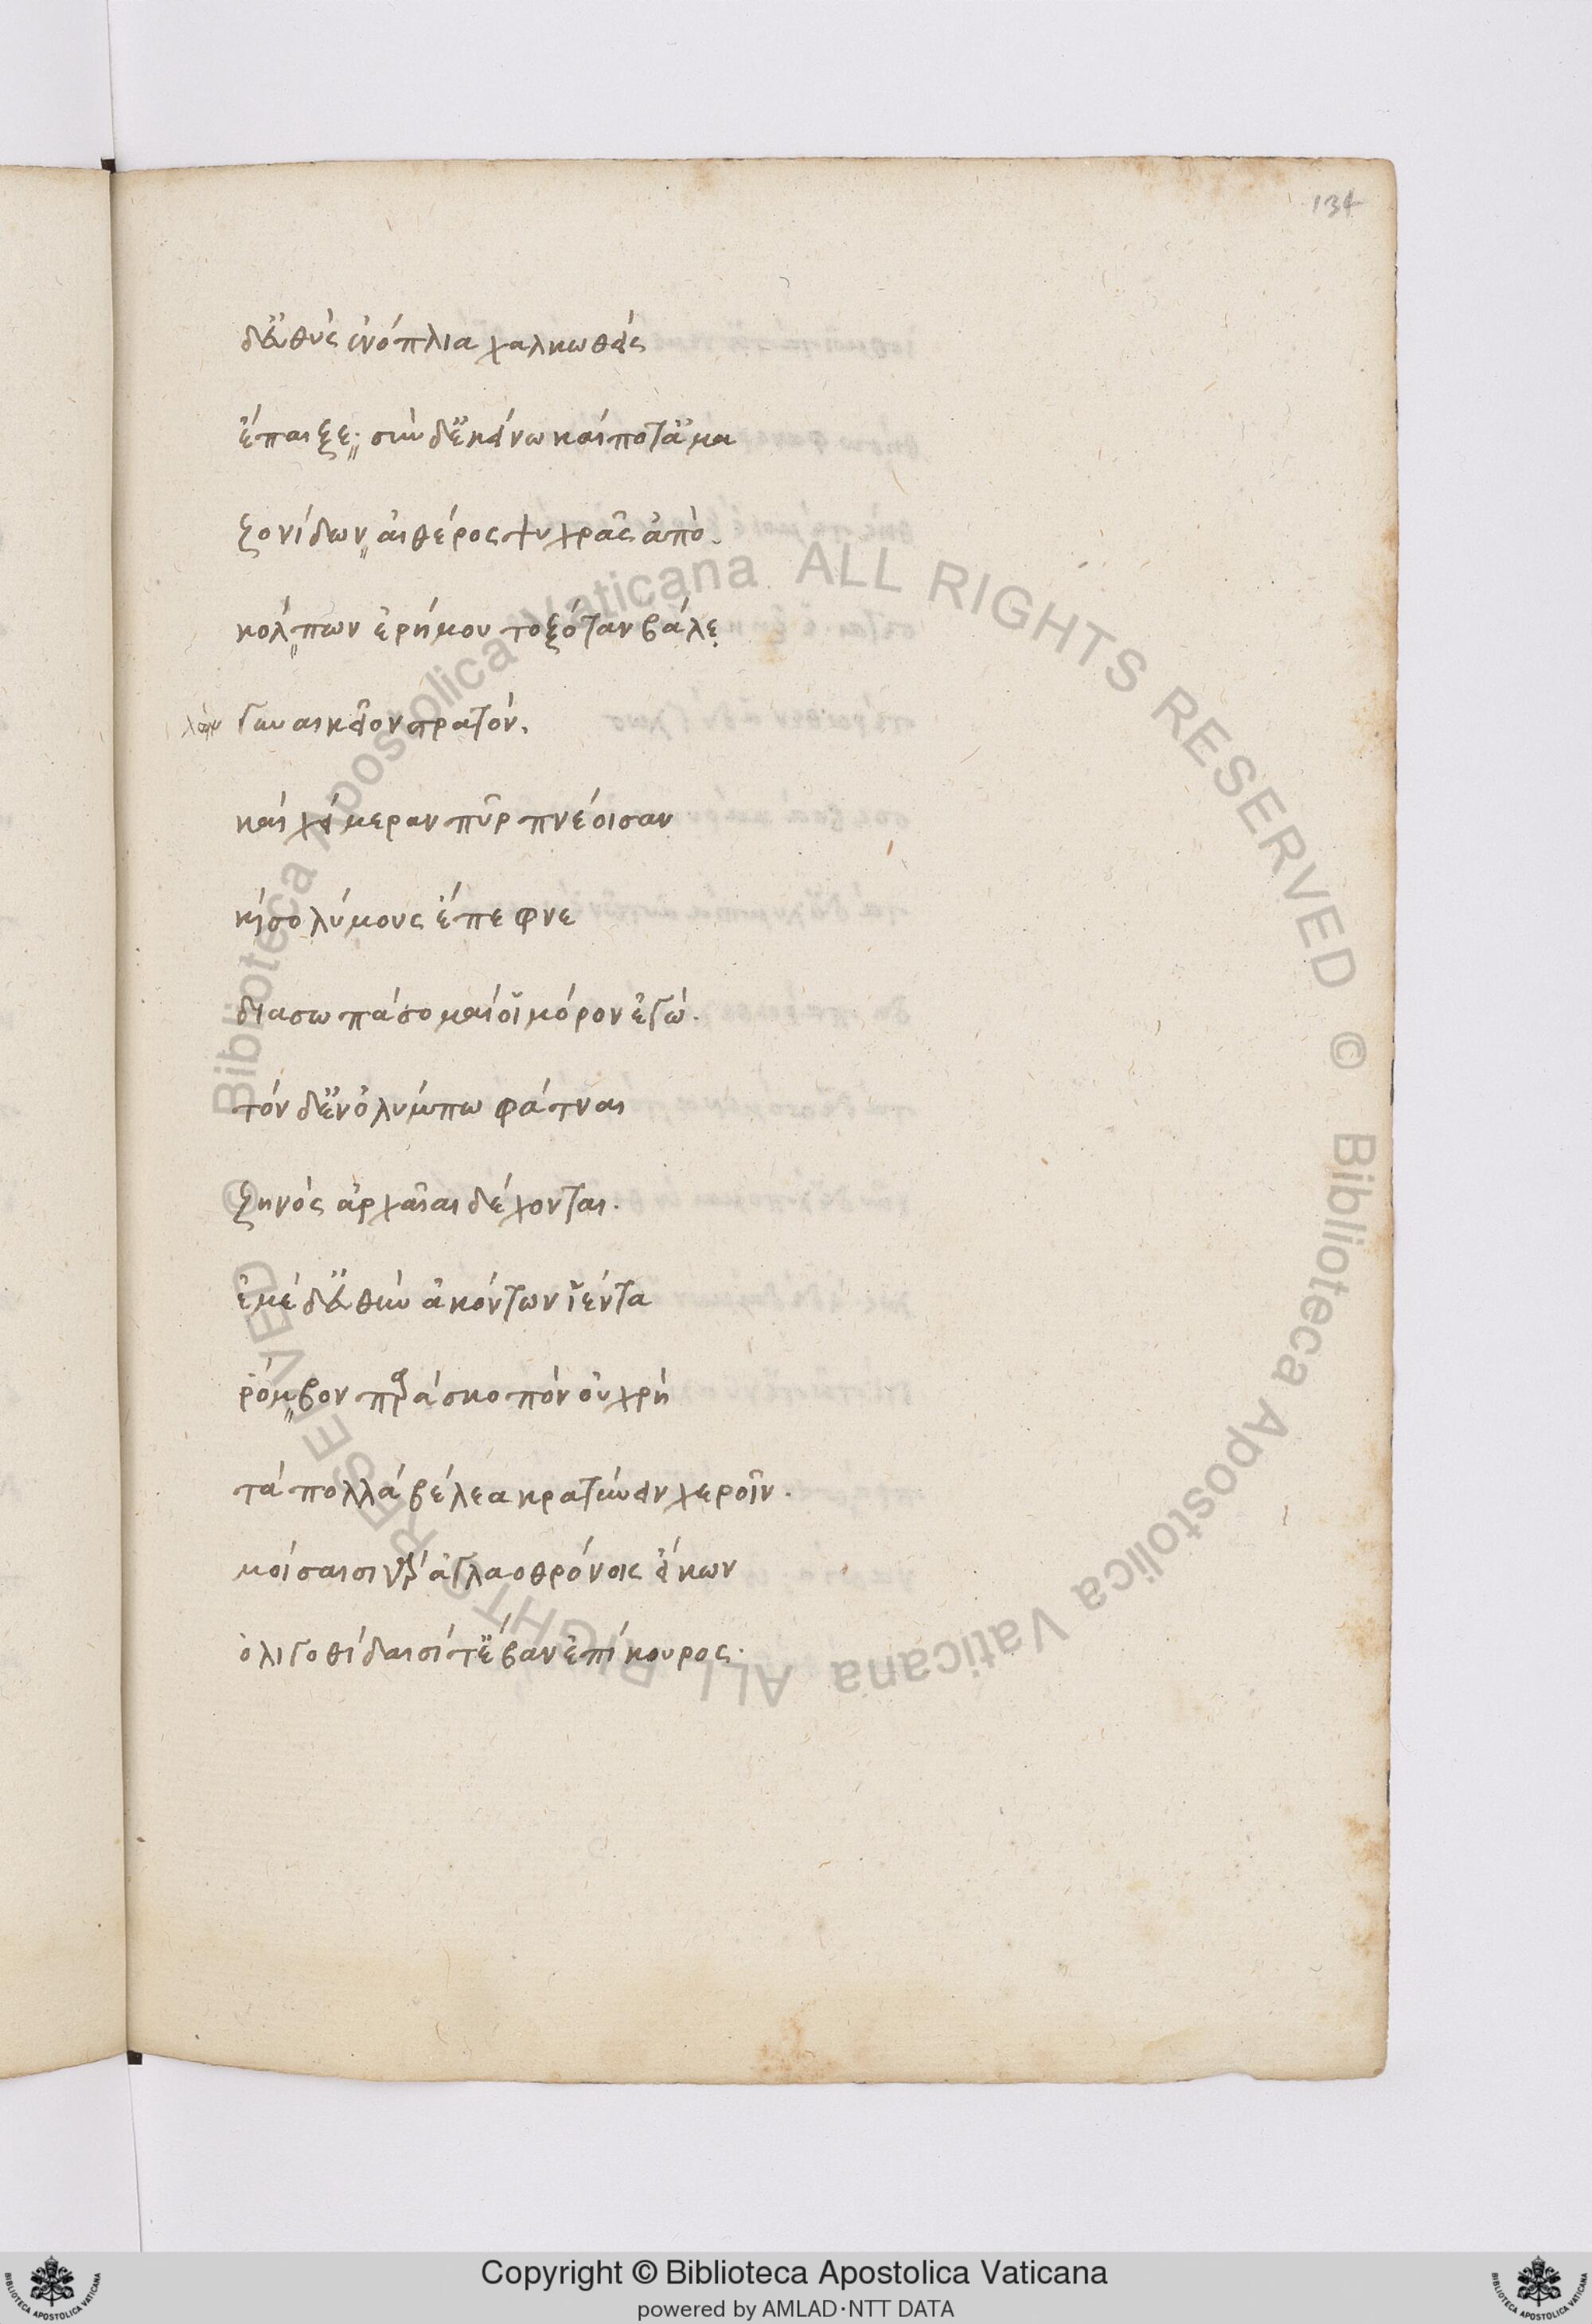 134
δ' εὐθὺς ἐνόπλια χαλκωθεὶς
ἔπαιξε· σὺν δὲ κείνω καί ποτ' ἀμα
ζονίδων αἰθέρος ψυχρᾶς ἀπὸ
κόλπων ἐρήμου τοξόταν βάλε
γυναικεῖον στρατόν.
καὶ χίμαιραν πῦρ πνέοισαν
καὶ σολύμους ἔπεφνε
διασωπάσομαί οἱ μόρον ἐγώ.
τὸν δ' ἐν ὀλύμπω φάτναι
ζηνὸς ἀρχαῖαι δέχονται.
ἐμὲ δ' εὐθὺν ἀκόντων ἱέντα
ῥόμβον παρὰ σκοπὸν οὐ χρὴ
τὰ πολλὰ βέλεα κρατύνειν χεροῖν.
μοίσαισι γὰρ ἀγλαοθρόνοις ἑκὼν
ὀλιγοθίδαισί τ' ἔβαν ἐπίκουρος.
Biblioteca Apostolica Vaticana ALL RIGHTS RESERVED ©
Biblioteca Apostolica Vaticana ALL RIGHTS RESERVED ©
Copyright © Biblioteca Apostolica Vaticana
powered by AMLAD·NTT DATA
BIBLIOTECA APOSTOLICA VATICANA
BIBLIOTECA APOSTOLICA VATICANA